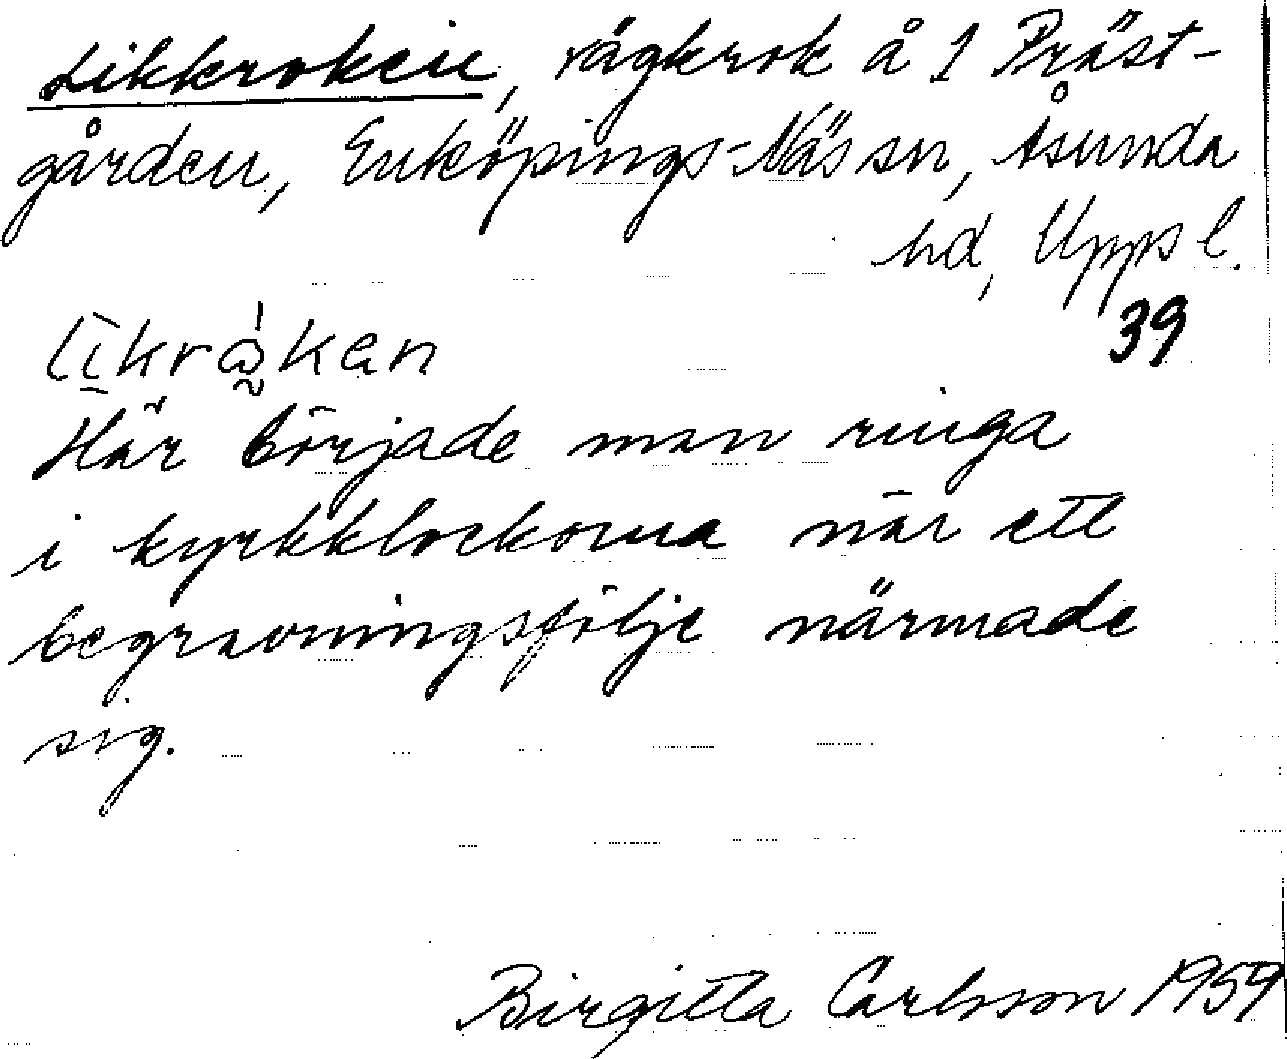 Likkroken, vägkrok å 1 Präst-
gården, Enköpings-Näs sn, Åsunda
hd, Uppsl.
39
līkrå̀kan
Här började man ringa
i kyrkklockorna när ett
begravningsfölje närmade
sig.
Birgitta Carlsson 1959